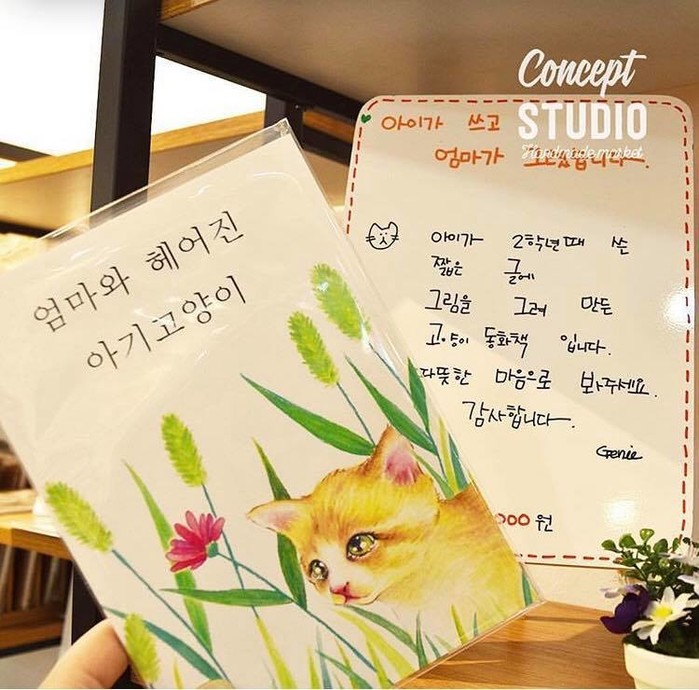 Concept
STUDIO
Handmade market
아이가 쓰고
엄마가
아이가 2학년때 쓴
짧은 글에
그림을 그려 만든
고양이 동화책 입니다.
따뜻한 마음으로 봐주세요.
감사합니다.
Genie
000원
엄마와 헤어진
아기고양이